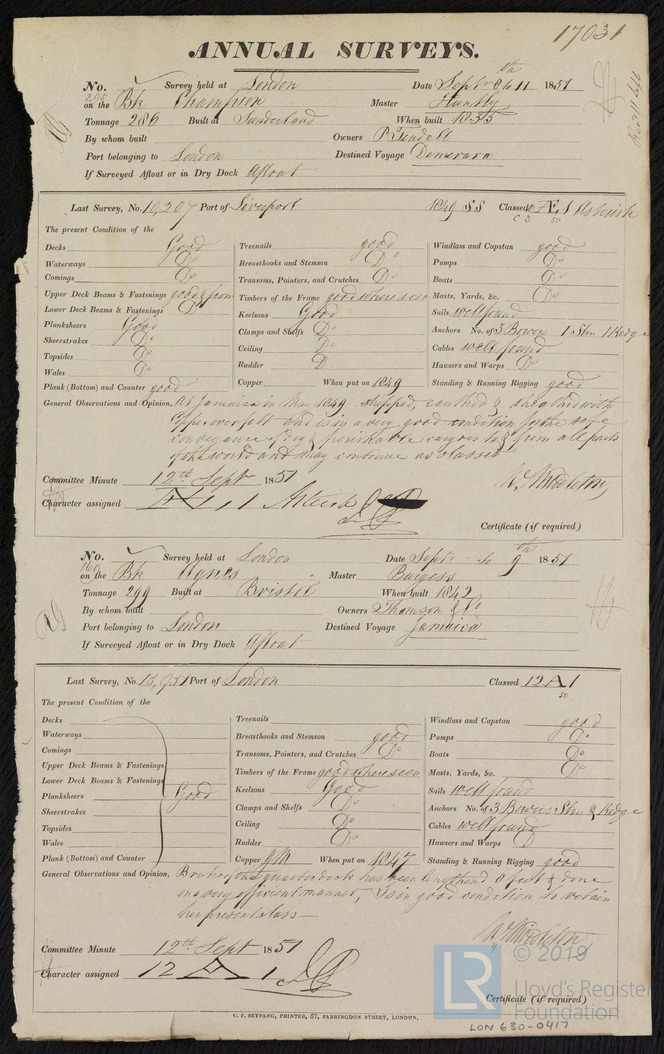 17031
ANNUAL SURVEYS.
No. 205 Survey held at London Date Septr 11th 1851
on the Bk Champion Master Huntly
Tonnage 286 Built at Sunderland When built 1835
By whom built Owners P Tindall
Port belonging to London Destined Voyage Demerara
If Surveyed Afloat or in Dry Dock Afloat
Last Survey, No. 10,207 Port of Liverpool 1849 SS Classed Æ 1 Asterisk
50
The present Condition of the
Decks Good Treenails good Windlass and Capstan good
Waterways Do Breasthooks and Stemson Do Pumps Do
Comings Do Transoms, Pointers, and Crutches Do Boats Do
Upper Deck Beams & Fastenings good & firm Timbers of the Frame good where seen Masts, Yards, &c. Do
Lower Deck Beams & Fastenings Do Keelsons Good Sails well found
Planksheers Good Clamps and Shelfs Do Anchors No. of 3 Bowers 1 Stm 1 Kedge
Sheerstrakes Do Ceiling Do Cables well found
Topsides Do Rudder D Hawsers and Warps Do
Wales Do Copper When put on 1849 Standing & Running Rigging good
Plank (Bottom) and Counter good
General Observations and Opinion, At Jamaica in May 1849 stripped, caulked & sheathed with
Copper over felt and is in a very good condition for the safe
conveyance of dry & perishable cargoes to & from all parts
of the world and may continue as classed
Committee Minute 12th Sept 1851
Character assigned Æ 1 Asterisk
Certificate (if required)
No. 160 Survey held at London Date Septr 9th 1851
on the Bk Agnes Master Burgess
Tonnage 299 Built at Bristol When built 1842
By whom built Owners Thomson & Co
Port belonging to London Destined Voyage Jamaica
If Surveyed Afloat or in Dry Dock Afloat
Last Survey, No. 15,951 Port of London Classed 12 A 1
50
The present Condition of the
Decks Treenails Windlass and Capstan good
Waterways Breasthooks and Stemson good Pumps Do
Comings Transoms, Pointers, and Crutches Do Boats Do
Upper Deck Beams & Fastenings Timbers of the Frame good where seen Masts, Yards, &c. Do
Lower Deck Beams & Fastenings Keelsons Good Sails well found
Planksheers Good Clamps and Shelfs Do Anchors No. of 3 Bowers Stm & Kedge
Sheerstrakes Ceiling Do Cables well found
Topsides Rudder Do Hawsers and Warps D
Wales Copper YM When put on 1847 Standing & Running Rigging good
Plank (Bottom) and Counter
General Observations and Opinion, quarterdeck has been lengthened 8 feet & done
in a very efficient manner, is in good condition to retain
her present class
Committee Minute 12th Sept 1851
Character assigned 12 A 1
Certificate (if required)
C. F. SEYFANG, PRINTER, 57, FARRINGDON STREET, LONDON.
LR
© 2019
Lloyd's Register
Foundation
LON 630-0417